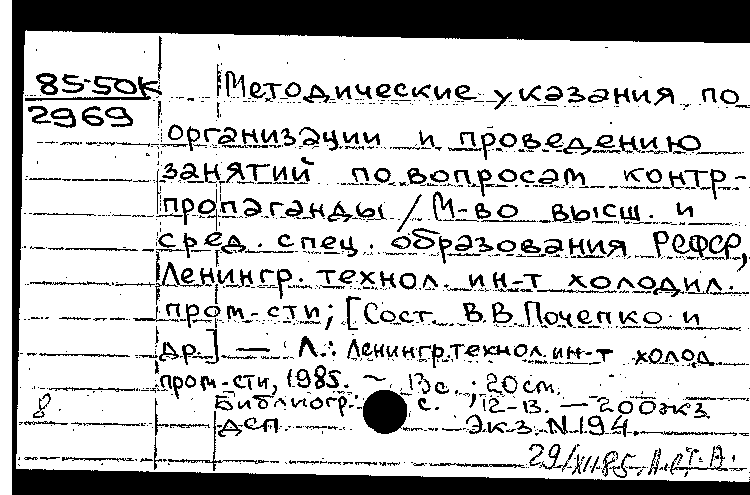 85-50К Методические указания по
2969
организации и проведению
занятий по вопросам контр-
пропаганды / М-во высш. и
сред. спец. образования РСФСР,
Ленингр. технол. ин-т холодил.
пром-сти; [Сост. В.В. Почепко и
др.] — Л.: Ленингр. технол. ин-т холод
пром-сти, 1985. ~ 13с. ; 20см.
8 Библиогр.: с. 12-13. — 200экз
ДСП. Экз. N 194.
29/XII85.